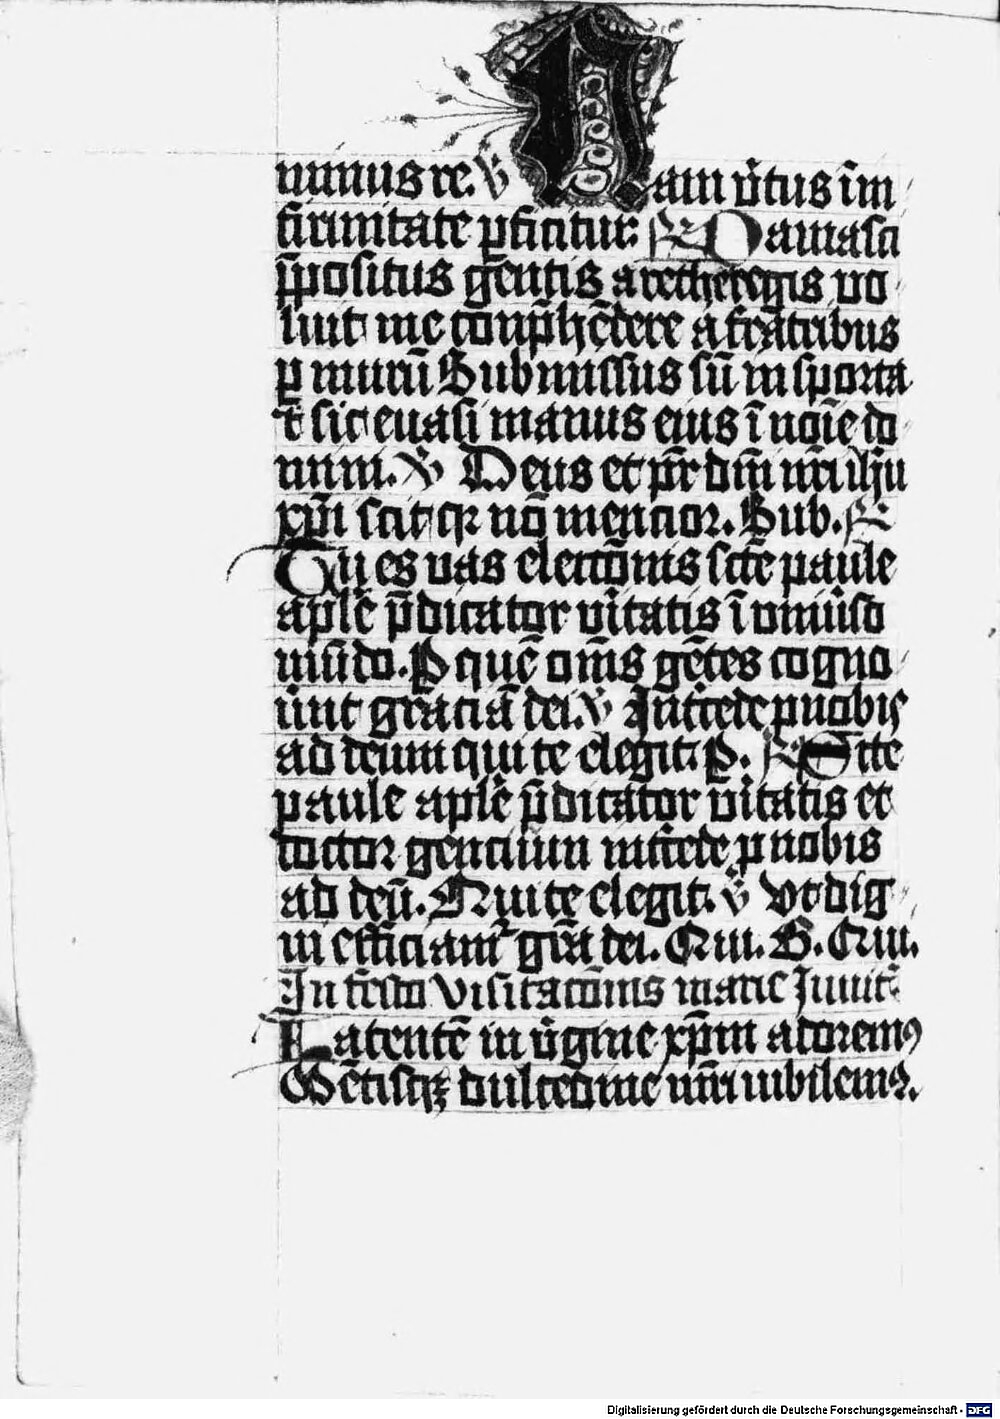 minus re. v̄ Nam v̓tus ī in
firmitate ꝑficitur: R̄ Damasci
p̄positus gentis arethe regis vo
luit me conp̄hēdere a fratribus
ꝑ murū Submissus sū in sporta
⁊ sic euasi manus eius ī noīe do
mini. v̄ Deus et pr̄ dn̄i nr̄i ih̄u
xp̄i scit qꝛ nō mencior. Sub. R̄
Tu es vas electōnis sct̄e paule
apl̄e p̄dicator v̓itatis ī vniu̓so
mūdo. P quē om̄s gētes cogno
u̓unt gratiā dei. v̄ Int̓cede ꝓ nobis
ad deum qui te elegit. P. R̄ Scte
paule apl̄e p̄dicator v̓itatis et
doctor gencium int̓cede ꝓ nobis
ad deū. Qui te elegit. v̄ Vt dig
ni efficiamr̄ grā dei. Qui. G. Qui.
In festo visitacōnis marie Inuit̄
Latentē in v̓gine xp̄m adoremꝰ
Mētisqꝫ dulcedine nīm iubilemꝰ.
Digitalisierung gefördert durch die Deutsche Forschungsgemeinschaft - DFG